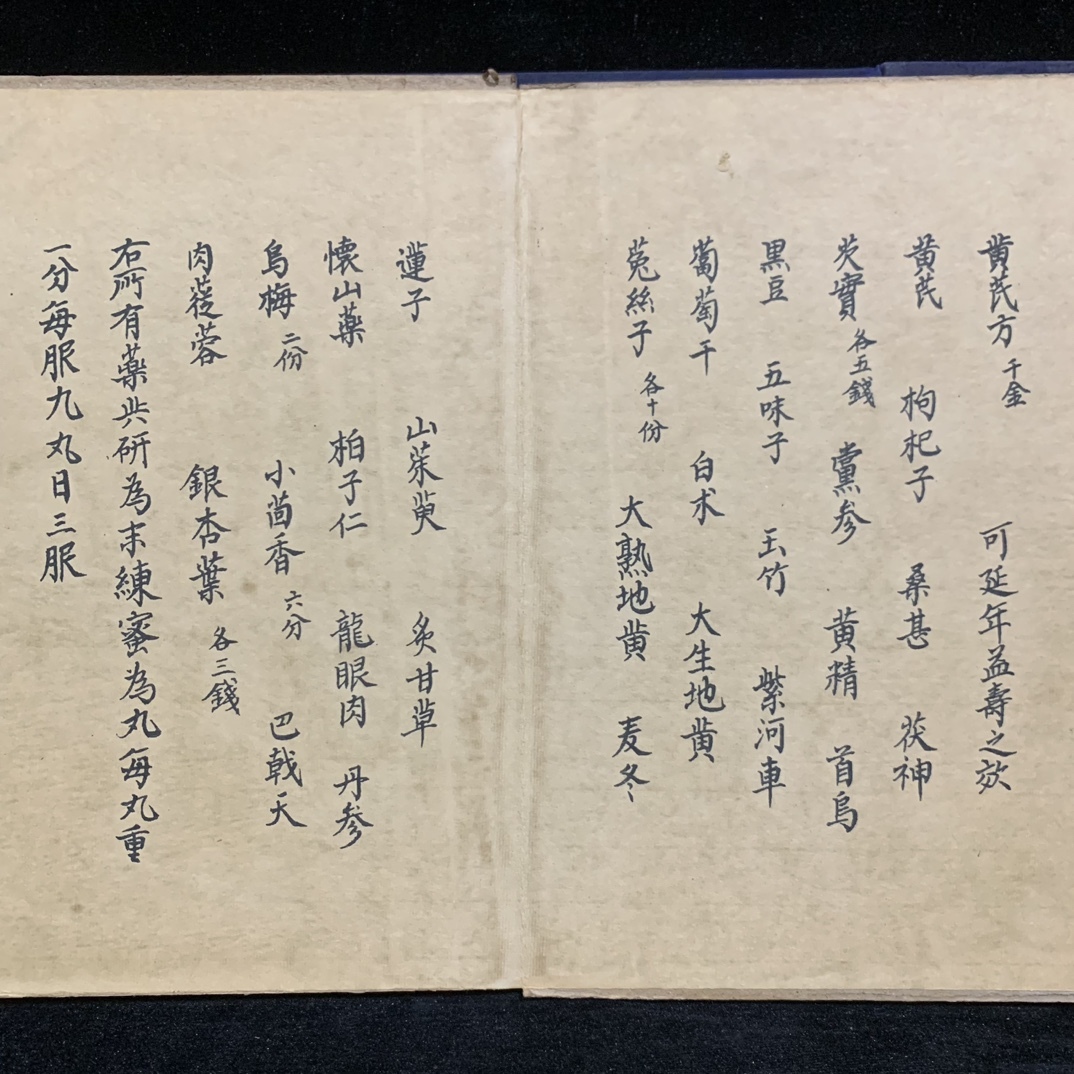 黄芪方 千金 可延年益壽之效
黄芪 枸杞子 桑葚 茯神
芡實 各五錢 黨參 黄精 首烏
黑豆 五味子 玉竹 紫河車
葡萄干 白术 大生地黄
菟絲子 各十份 大熟地黄 麦冬
蓮子 山茱萸 炙甘草
懷山藥 柏子仁 龍眼肉 丹參
烏梅 二份 小茴香 六分 巴戟天
肉蓯蓉 銀杏葉 各三錢
右所有藥共研為末練蜜為丸每丸重
一分每服九丸日三服